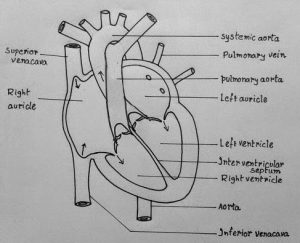 systemic aorta
Superior
venacava
Pulmonary vein
pulmonary aorta
Right
auricle
Left auricle
Left ventricle
Inter ventricular
septum
Right ventricle
Aorta
Inferior venacava